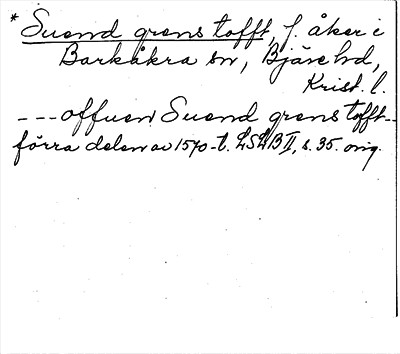 * Suend grens tofft, f. åker i
Barkåkra sn, Bjäre hd,
Krist. l.
---offuen Suend grens tofft--
förra delen av 1570-t. LSLB II, s. 35. orig.